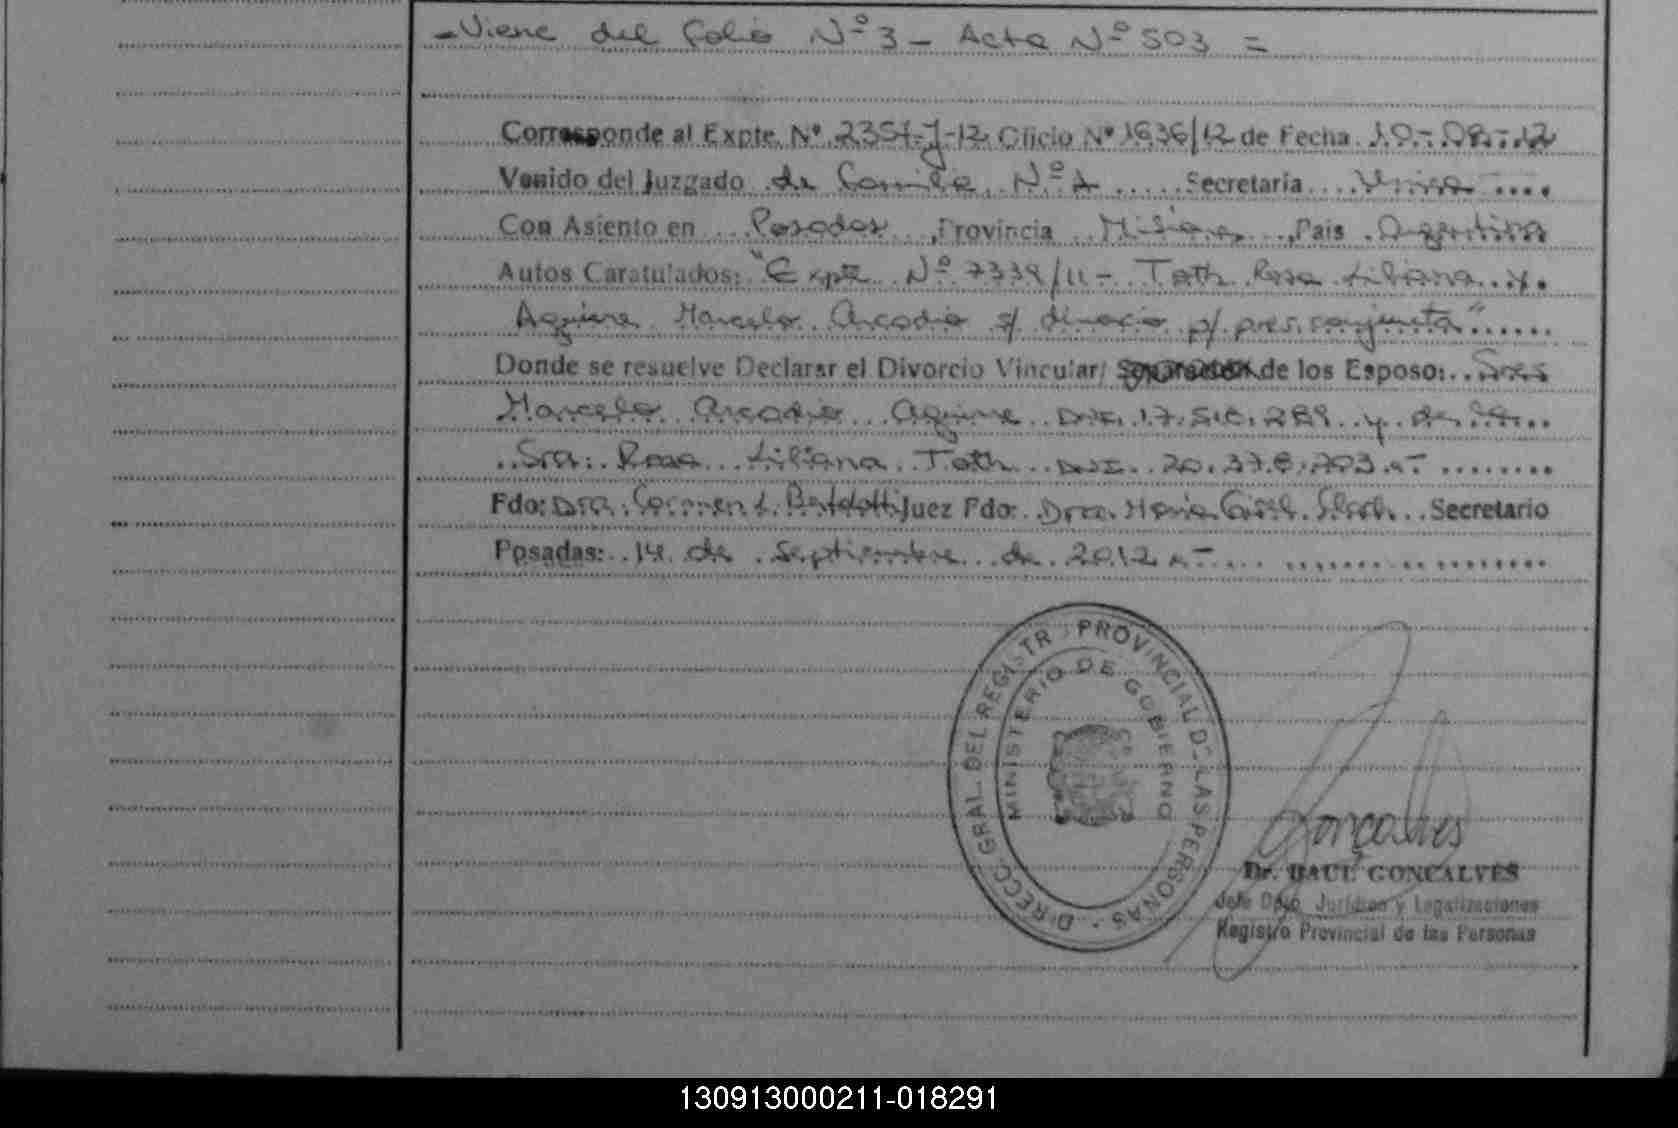 -Viene del folio Nº 3 - Acta Nº 503 =
Corresponde al Expte. Nº 2351-J-12 Oficio Nº 1636/12 de Fecha 10-08-12
Venido del Juzgado de Familia Nº 1 Secretaría Unica
Con Asiento en Posadas, Provincia Misiones, País Argentina
Autos Caratulados: "Expte Nº 7339/11 - Toth Rosa Liliana y.
Aguirre Marcelo Arcadio s/ divorcio p/ pres. conjunta"
Donde se resuelve Declarar el Divorcio Vincular/ de los Esposo:
Marcelo Arcadio Aguirre DNI. 17. y de la
Sra: Rosa Liliana Toth DNI. 20.
Fdo: Dra. Carmen L. Juez Fdo: Dra. Secretario
Posadas: 14 de Septiembre de 2012.-
DIRECC. GRAL. DEL REGISTR PROVINCIAL D LAS PERSONAS
MINISTERIO DE GOBIERNO
Gonçalves
Dr. RAUL GONCALVES
Jefe Dpto. Jurídico y Legalizaciones
Registro Provincial de las Personas
130913000211-018291